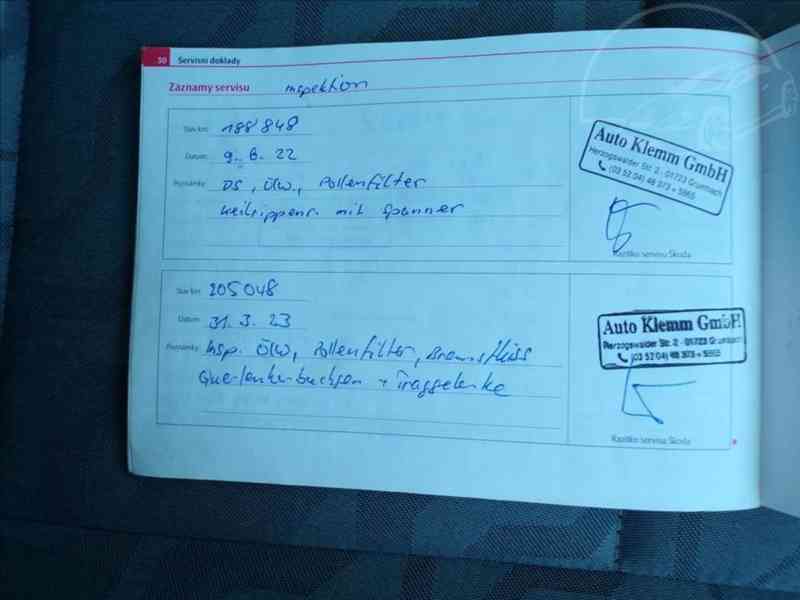 30 Servisní doklady
Záznamy servisu Inspektion
Stav km: 188 848
Datum: 9. 8. 22
Poznámky: DS, Ölw, Pollenfilter
Keilrippenr. mit Spanner
Auto Klemm GmbH
Herzogswalder Str. 2 - 01723 Grumbach
(03 52 04) 48 373 + 5865
Razítko servisu Škoda
Stav km: 205048
Datum: 31. 3. 23
Poznámky: Insp. Ölw, Pollenfilter, Bremsflüss
Querlenkerbuchsen + Traggelenke
Auto Klemm GmbH
Herzogswalder Str. 2 - 01723 Grumbach
(03 52 04) 48 373 + 5865
Razítko servisu Škoda